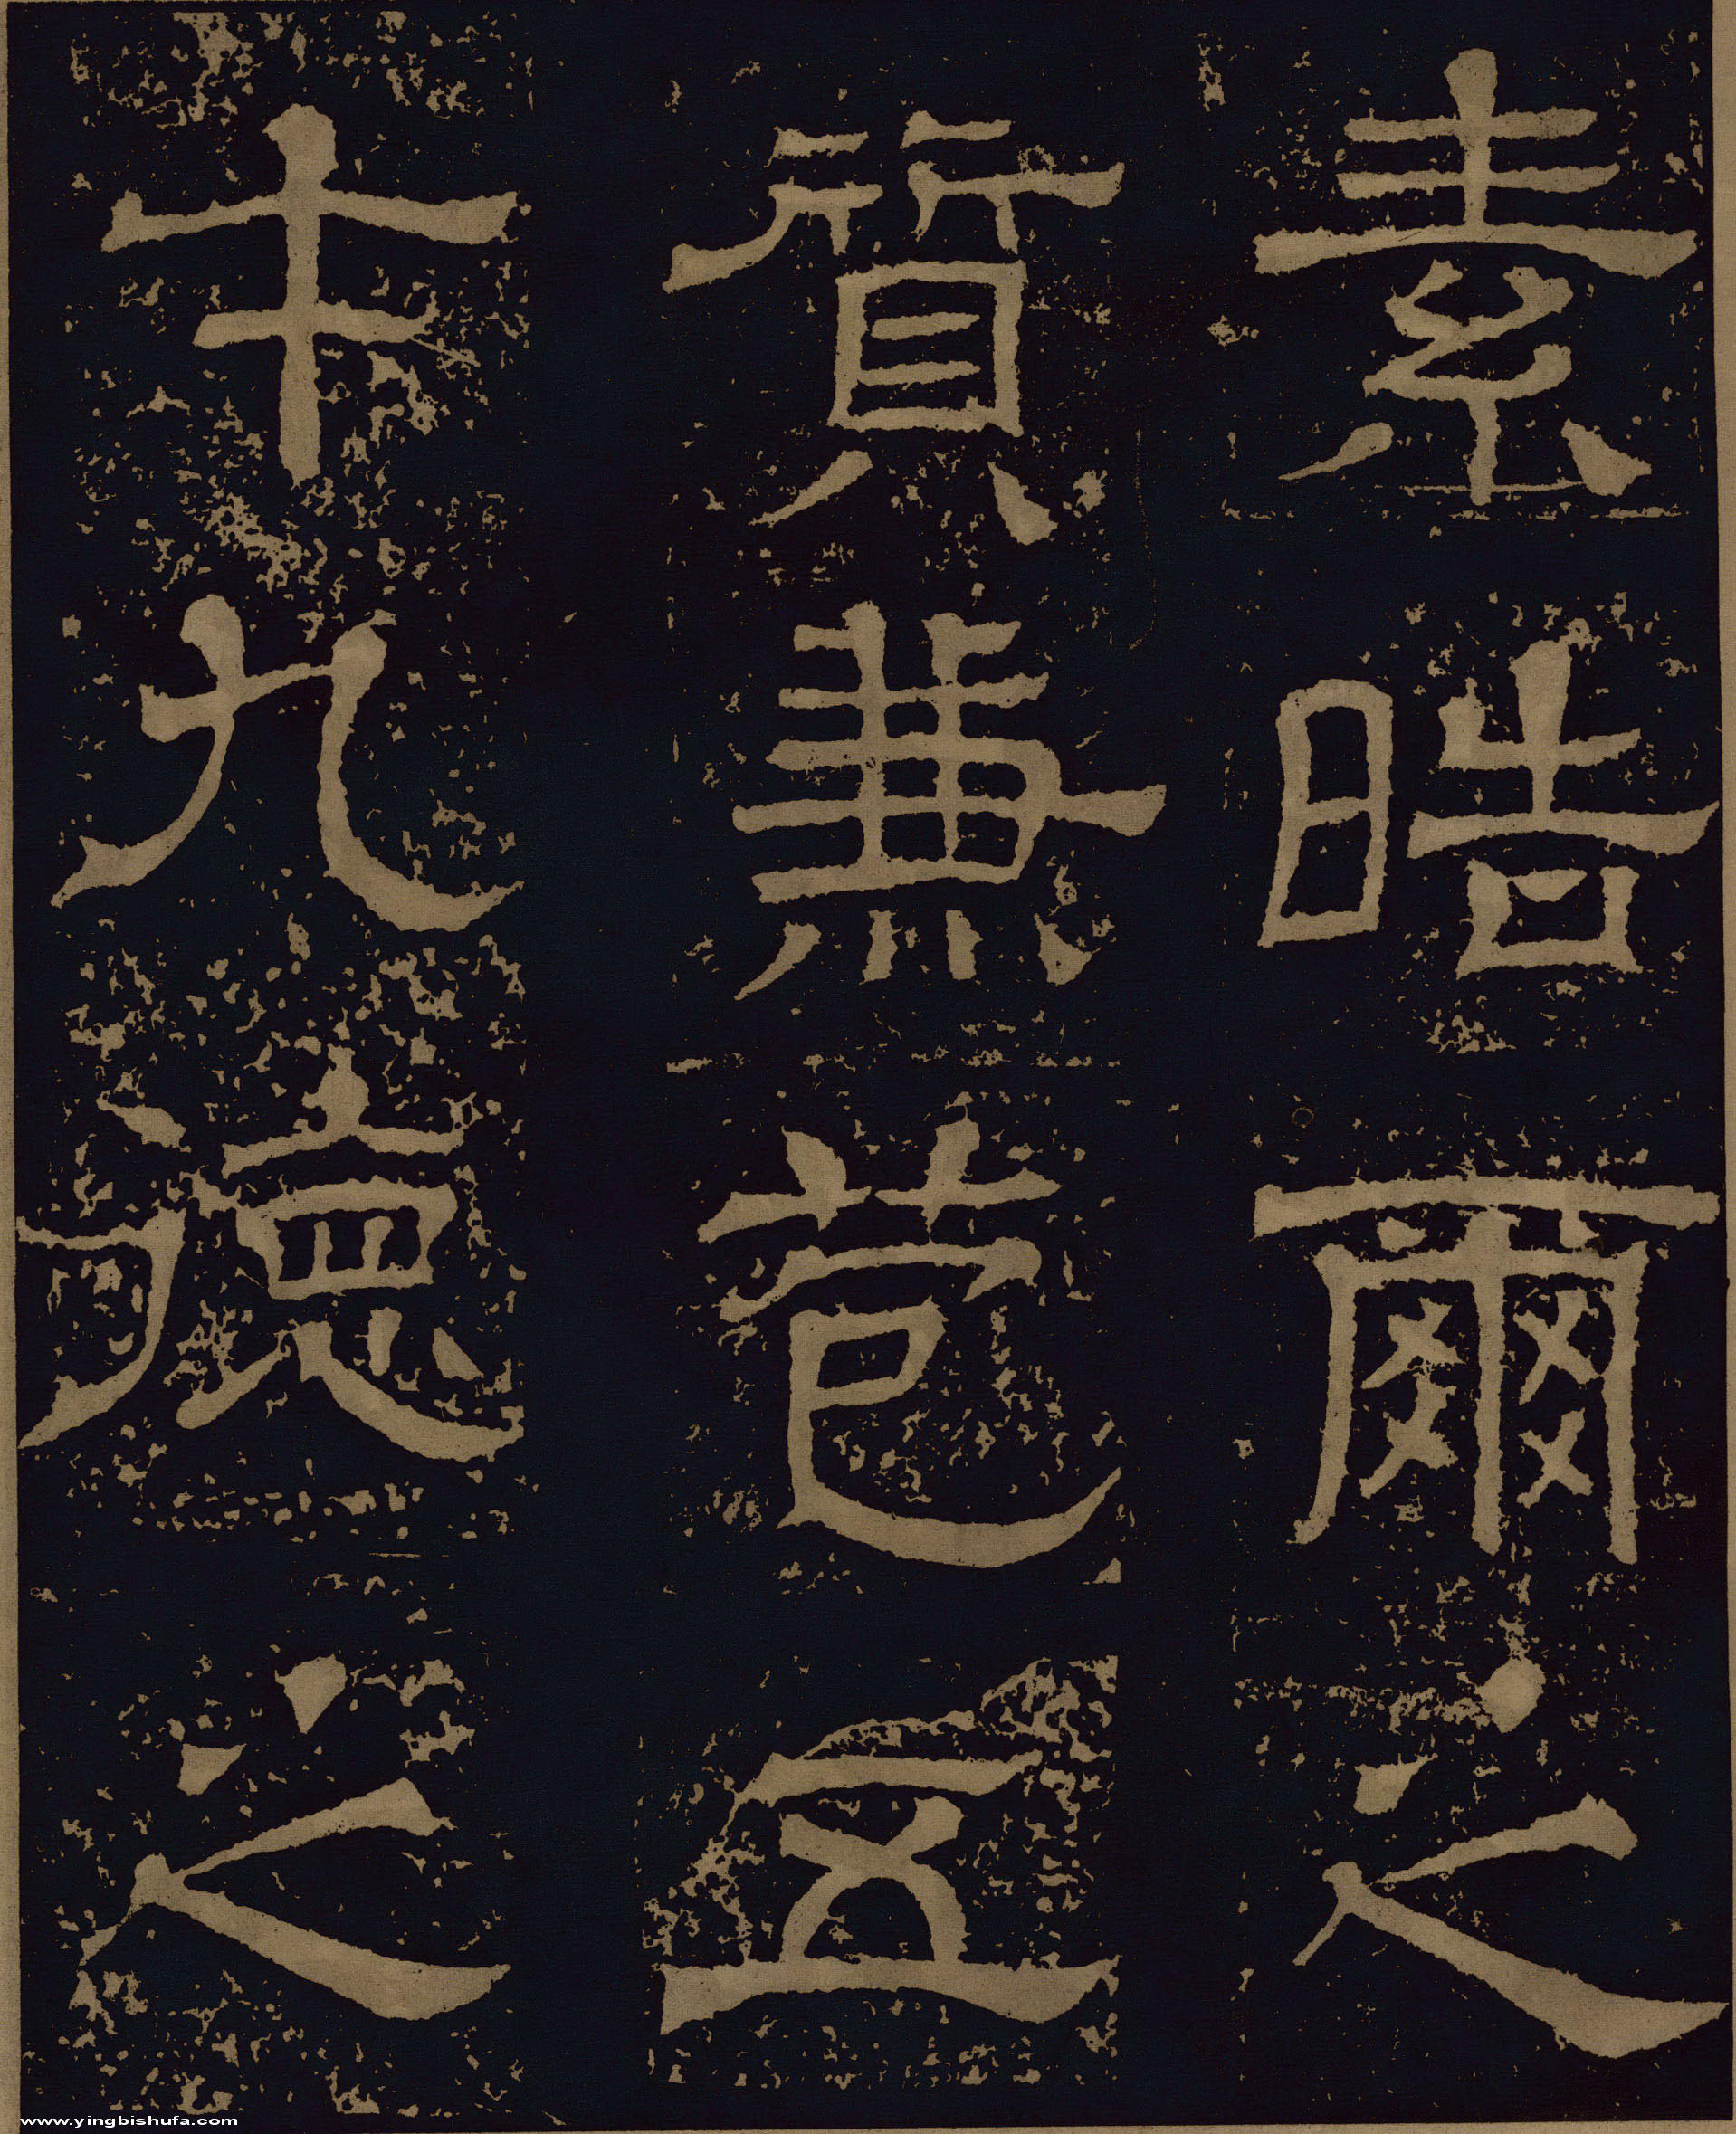 素晧爾之
質兼苞五
才九德之
www.yingbishufa.com